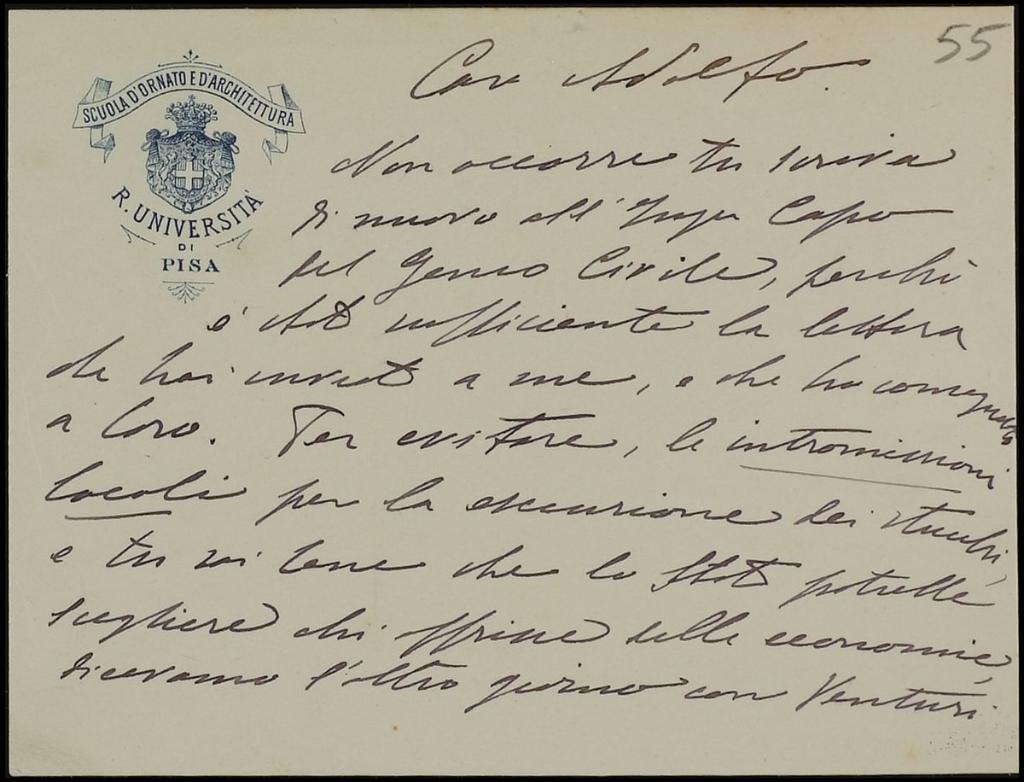 55
SCUOLA D'ORNATO E D'ARCHITETTURA
R. UNIVERSITÀ
DI
PISA
Caro Adolfo.
Non occorre tu scriva
di nuovo all'Inger Capo
del Genio Civile, perchè
è stato sufficiente la lettera
che hai inviato a me, e che ho consegnato
a loro. Per evitare, le intromissioni
locali per la escuzione dei stucchi,
e tu sai bene che lo Stato potrebbe
scegliere chi offrisse delle economie,
dicevamo l'altro giorno con Venturi